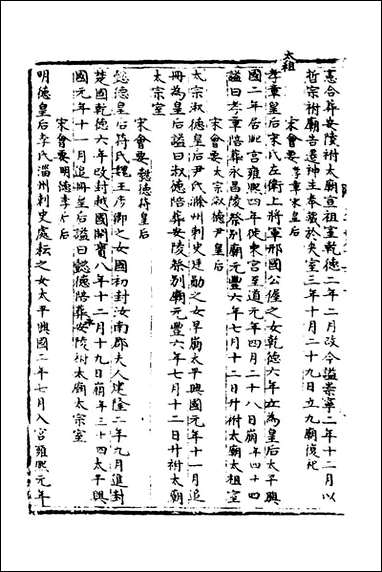 憲合葬安陵祔太廟宣祖室乾德二年二月改今謚崇寧二年十二月以
哲宗祔廟告遷神主奉藏於夾室三年十月二十九日立九廟復祀
太祖
宋會要孝章宋皇后
孝章皇后宋氏左衛上將軍邢國公偓之女乾德六年立為皇后太平興
國二年居西宮雍熙四年徙東宮至道元年四月二十八日崩年四十四
謚曰孝章陪葬永昌陵祭別廟元豐六年七月十二日升祔太廟太祖室
宋會要太宗淑德尹皇后
太宗淑德皇后尹氏滁州刺史廷勛之女早崩太平興國元年十一月追
冊為皇后謚曰淑德陪葬安陵祭別廟元豐六年七月十二日升祔太廟
太宗室
宋會要懿德符皇后
懿德皇后符氏魏王彥卿之女國初封汝南郡夫人建隆二年九月進封
楚國乾德六年改封越國開寶八年十二月十九日崩年三十四太平興
國元年十一月追冊皇后謚曰懿德陪葬安陵祔太廟太宗室
宋會要明德李皇后
明德皇后李氏淄州刺史處耘之女太平興國二年七月入宮雍熙元年